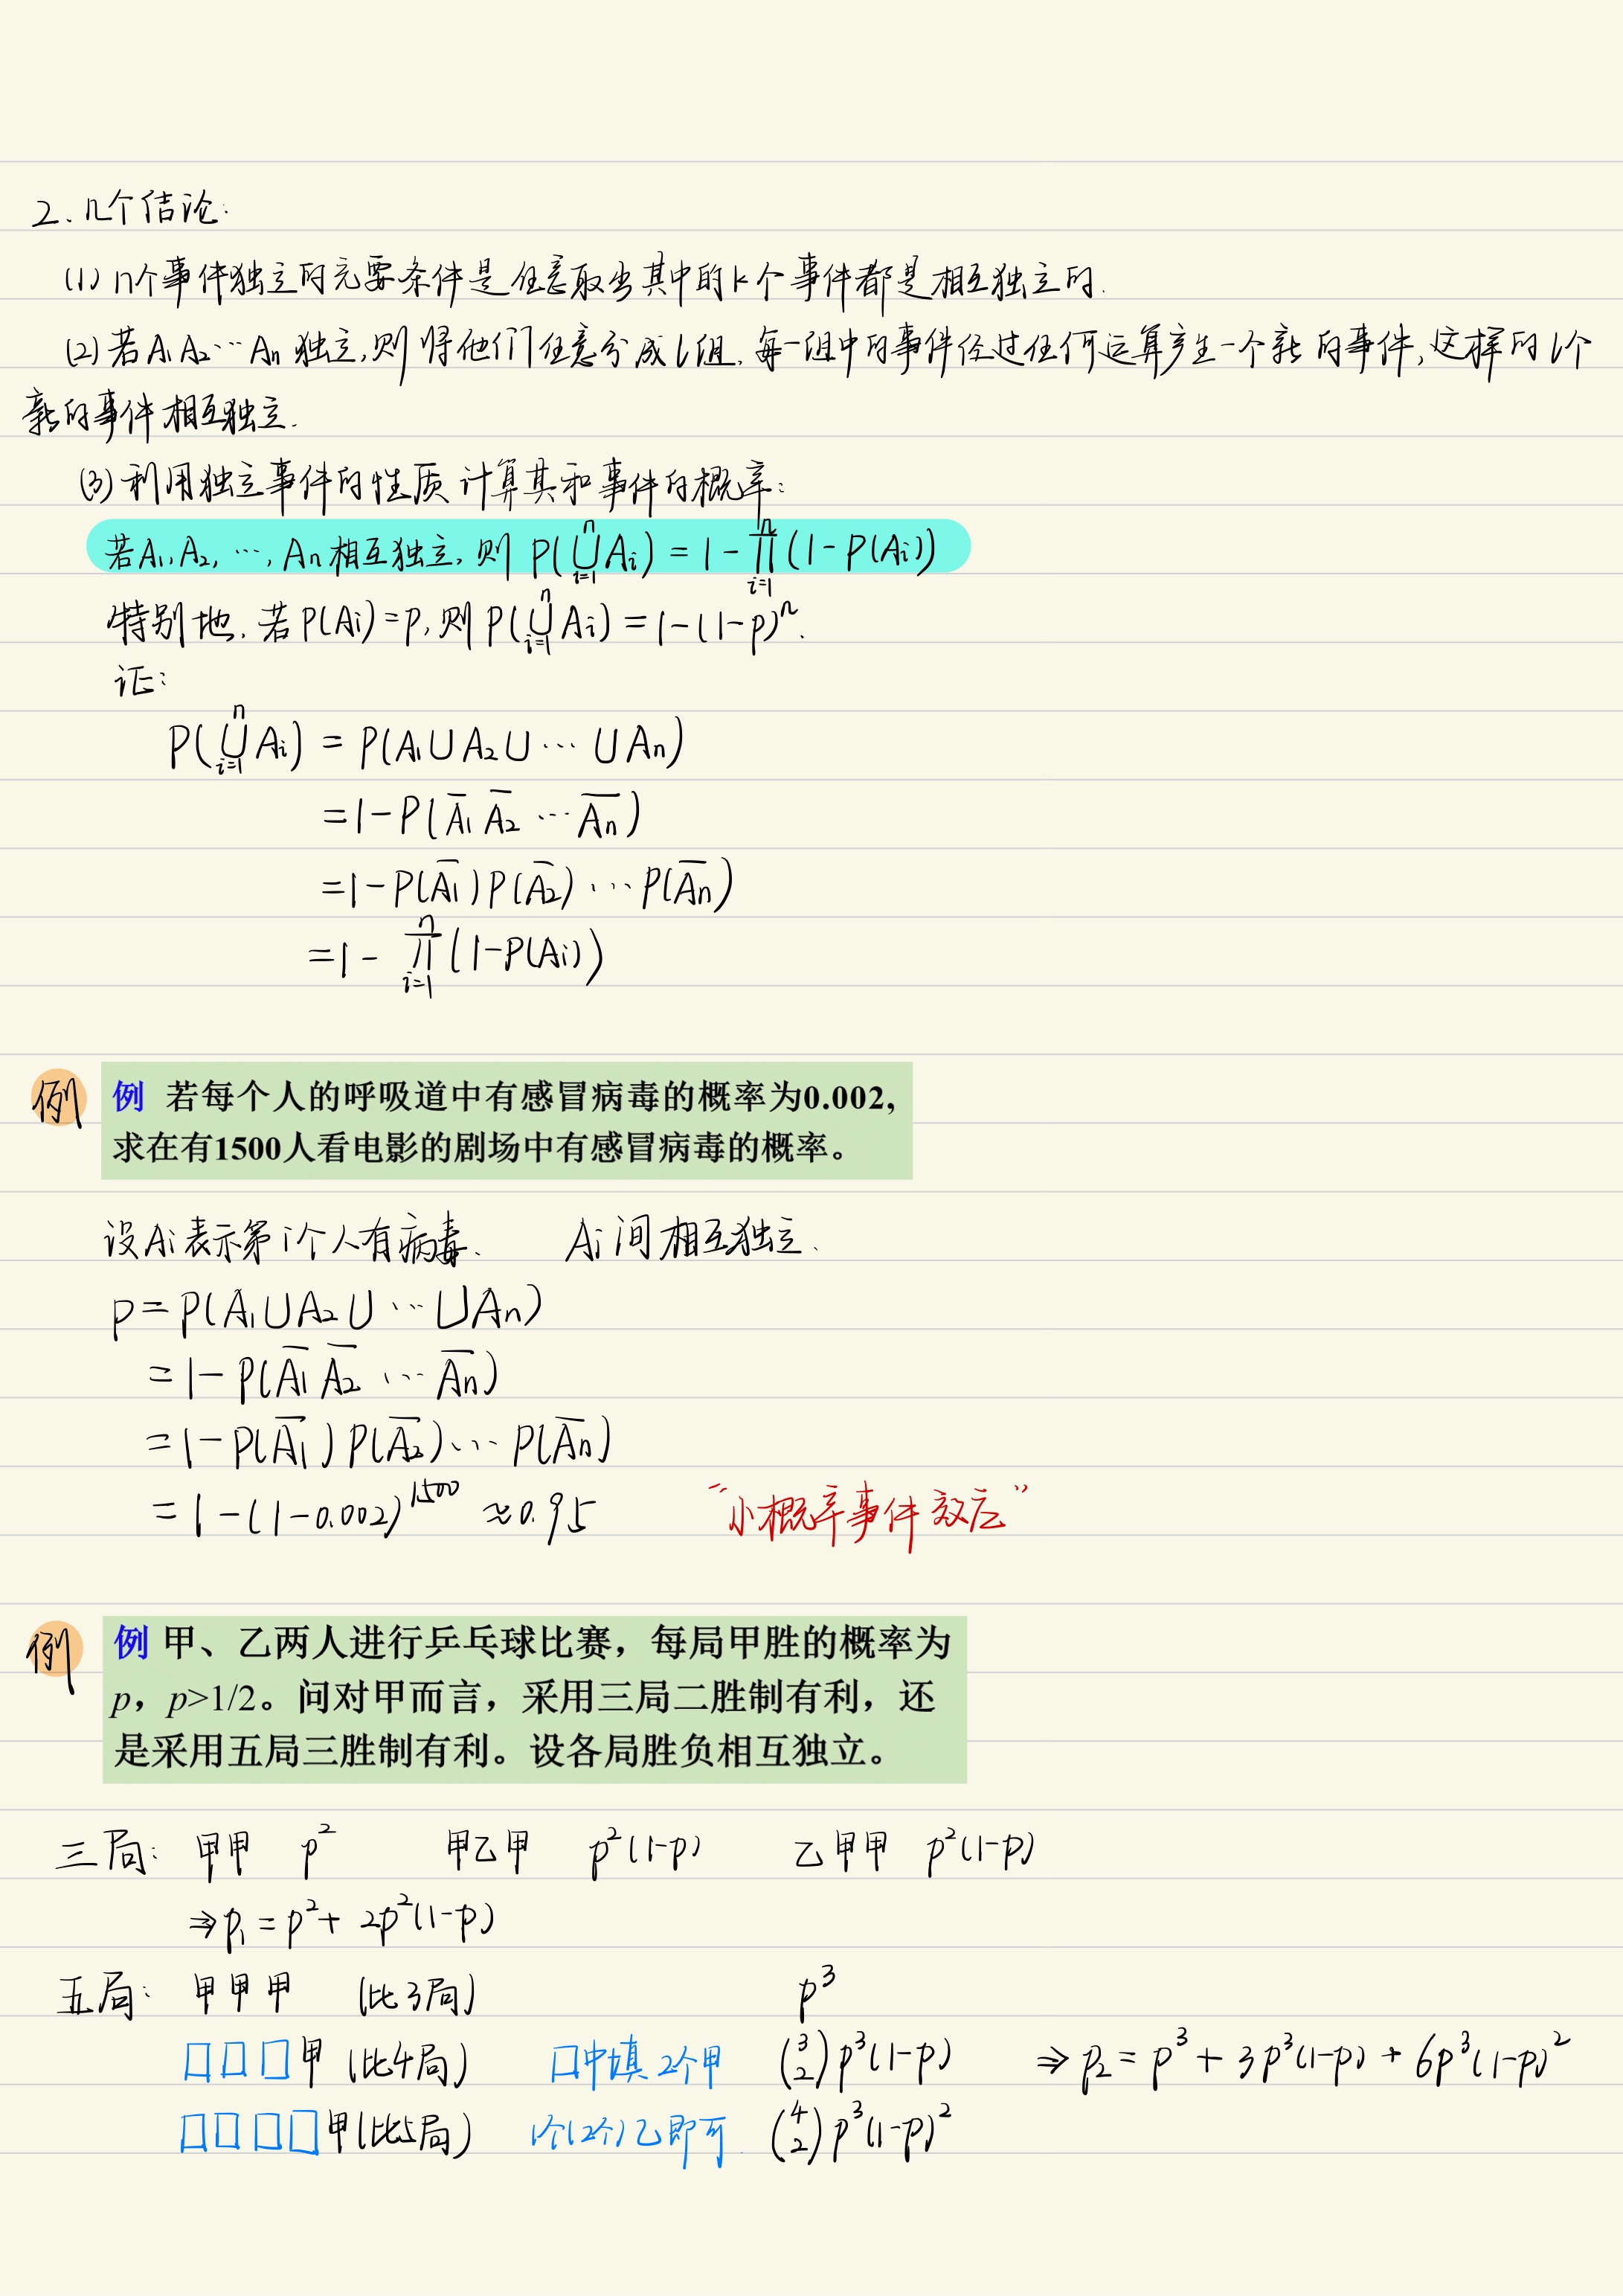 2. 几个结论:
(1) n个事件独立的充要条件是任意取出其中的k个事件都是相互独立的.
(2) 若A₁A₂…Aₙ独立,则将他们任意分成l组,每一组中的事件经过任何运算产生一个新的事件,这样的l个
新的事件相互独立.
(3) 利用独立事件的性质计算其和事件的概率:
若A₁,A₂,…,Aₙ相互独立,则 P(⋃ⁿᵢ₌₁Aᵢ) = 1-∏ⁿᵢ₌₁(1-P(Aᵢ))
特别地,若P(Aᵢ)=p,则P(⋃ⁿᵢ₌₁Aᵢ)=1-(1-p)ⁿ.
证:
P(⋃ⁿᵢ₌₁Aᵢ) = P(A₁∪A₂∪…∪Aₙ)
=1-P(A̅₁A̅₂…A̅ₙ)
=1-P(A̅₁)P(A̅₂)…P(A̅ₙ)
=1-∏ⁿᵢ₌₁(1-P(Aᵢ))
例 例 若每个人的呼吸道中有感冒病毒的概率为0.002,
求在有1500人看电影的剧场中有感冒病毒的概率。
设Aᵢ表示第i个人有病毒. Aᵢ间相互独立.
p=P(A₁∪A₂∪…∪Aₙ)
=1-P(A̅₁A̅₂…A̅ₙ)
=1-P(A̅₁)P(A̅₂)…P(A̅ₙ)
=1-(1-0.002)¹⁵⁰⁰ ≈0.95 “小概率事件效应”
例 例 甲、乙两人进行乒乓球比赛，每局甲胜的概率为
p，p>1/2。问对甲而言，采用三局二胜制有利，还
是采用五局三胜制有利。设各局胜负相互独立。
三局: 甲甲 p² 甲乙甲 p²(1-p) 乙甲甲 p²(1-p)
⇒p₁=p²+2p²(1-p)
五局: 甲甲甲 (比3局) p³
□□□甲 (比4局) □中填2个甲 (3 2)p³(1-p) ⇒p₂=p³+3p³(1-p)+6p³(1-p)²
□□□□甲(比5局) 1个(2个)乙即可. (4 2)p³(1-p)²